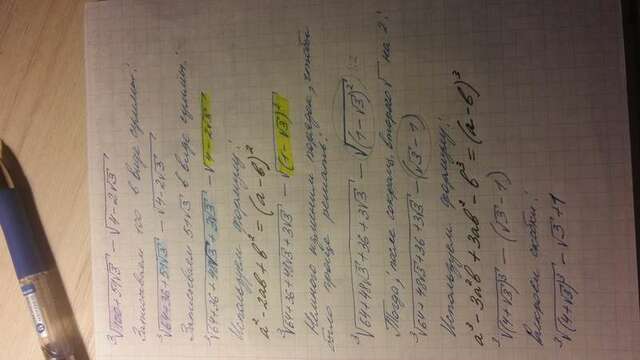 ³√(100+51√3) − √(4−2√3)
Записываем 100 в виде суммы:
³√(64+36+51√3) − √(4−2√3)
Записываем 51√3 в виде суммы:
³√(64+36+48√3+3√3) − √(4−2√3)
Используем формулу:
a² − 2ab + b² = (a − b)²
³√(64+36+48√3+3√3) − √((1−√3)²)
Немного изменим порядок, чтобы
было проще решать:
³√(64+48√3+36+3√3) − √((1−√3)²)
Тогда, после сокращ. второго √ на 2:
³√(64+48√3+36+3√3) − (√3−1)
Используем формулу:
a³ − 3a²b + 3ab² − b³ = (a − b)³
³√((4+√3)³) − (√3−1)
Раскроем скобки:
³√((4+√3)³) − √3 + 1